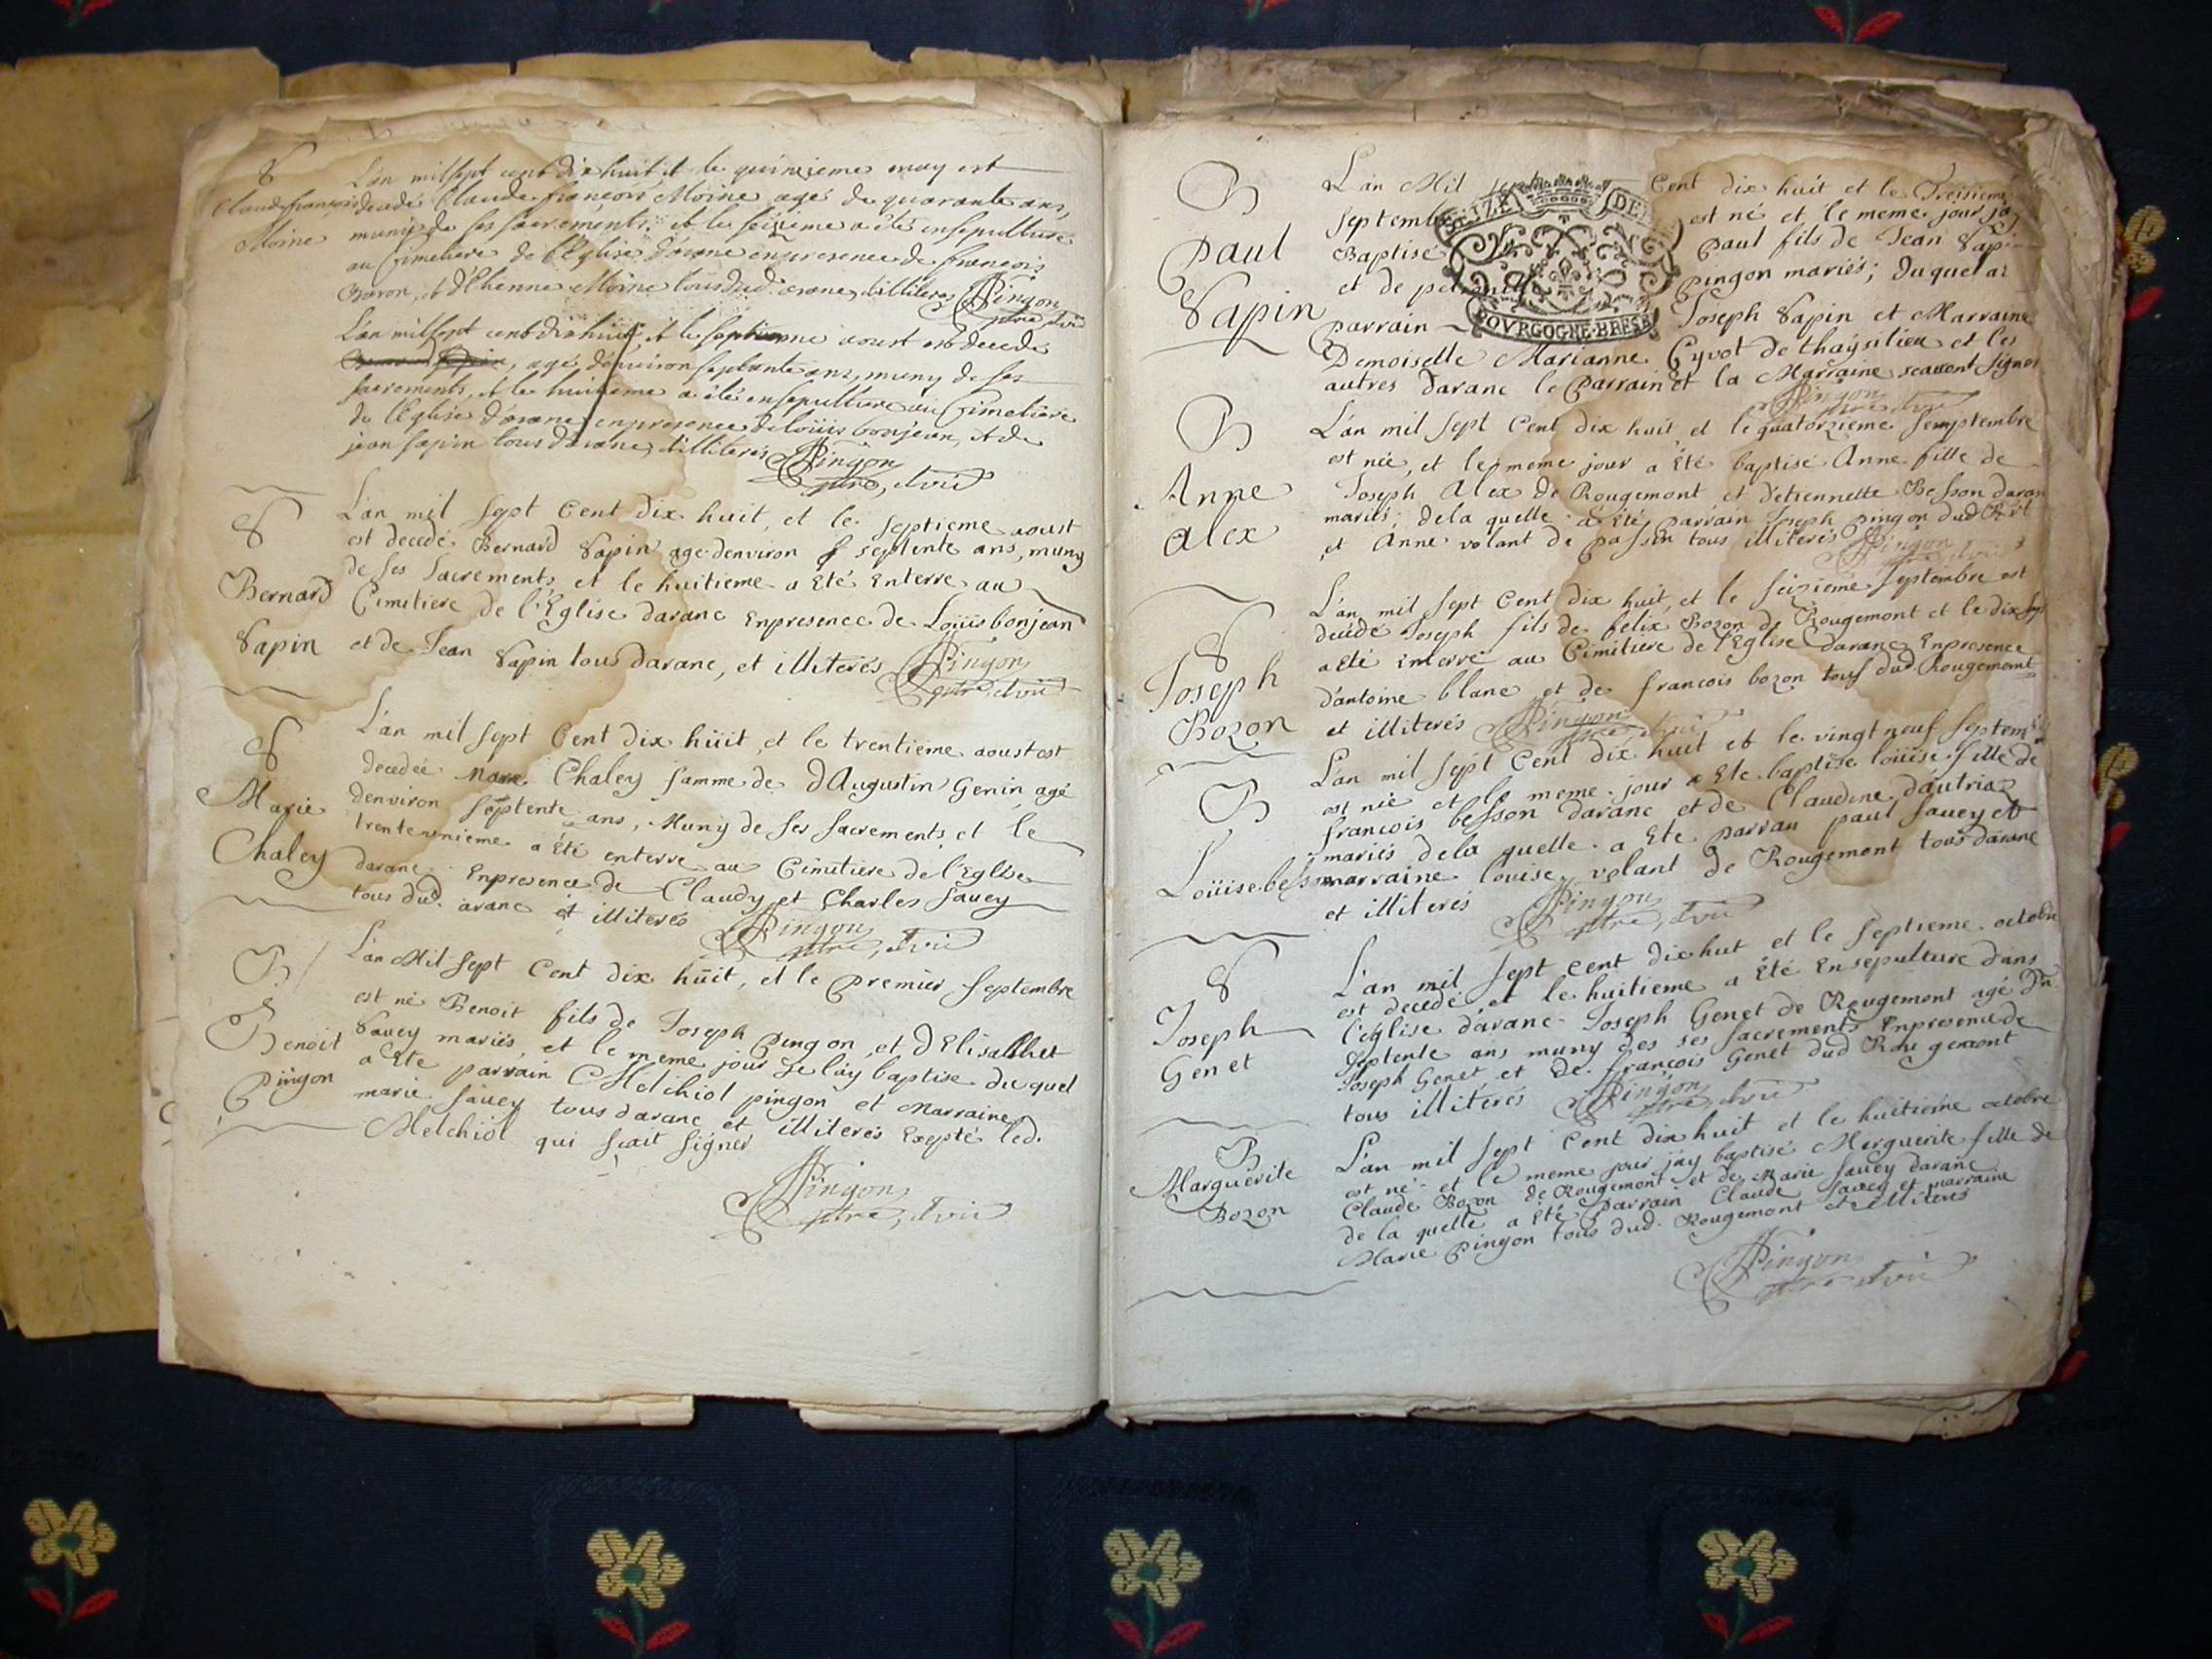 S
Claude françois
Moine
L'an mil sept cent dix huit, et le quinzieme may est
decedé Claude françois Moine agé de quarante ans,
muny de ses sacrements, et le seizieme a été ensepulturé
au cimetiere de l'Eglise d'arane en presence de françois
Bozon, et d'Etienne Moine tous dud. arane, et illiteres Pingon
ptre,
L'an mil sept cent dix huit, et le septieme aoust est decedé
agé d'environ septante ans, muny de ses
sacrements, et le huitieme a été ensepulturé au Cimetiere
de l'Eglise d'arane en presence de Loüis bonjean, et de
jean sapin tous d'arane, et illiterés Pingon
ptre,
S
Bernard
Sapin
L'an mil sept Cent dix huit, et le septieme aoust
est decedé Bernard Sapin age denviron septente ans, muny
de ses Sacrements, et le huitieme a Eté Enterre au
Cimitiere de l'Eglise darane Enpresence de Loüis bonjean
et de Jean Sapin tous darane, et illiterés Pingon
ptre,
S
Marie
Chaley
L'an mil sept Cent dix hüit, et le trentieme aoust est
decedée Marie Chaley famme de dAugustin Genin agé
denviron septente ans, Muny de ses sacrements, et le
trenteunieme a Eté enterre au Cimitiere de l'Eglise
darane Enpresence de Claudy et Charles Savey
tous dud. arane et illiterés Pingon
ptre,
B
Benoit
Pingon
L'an Mil sept Cent dix hüit, et le premier septembre
est né Benoit fils de Joseph pingon, et dElisabhet
Savey mariés, et le meme jour Je l'ay baptise duquel
a Ete parrain Melchiol pingon et Marraine
marie savey tous darane et illiterés Exepté led.
Melchiol qui scait signer
Pingon
ptre,
B
Paul
Sapin
L'an Mil sept Cent dix huit et le Tresieme
septembre est né et le meme jour jay
Baptisé paul fils de Jean Sapin
et de pingon mariés; duquel a
parrain Joseph Sapin et Marraine
Demoiselle Marianne Cyvot de thaysilieu et les
autres darane le Parrain et la Marraine scavent signer
Pingon
ptre,
B
Anne
Alex
L'an mil sept Cent dix huit, et le quatorzieme semptembre
est née, et le meme jour a Été baptisé Anne fille de
Joseph Alex de Rougemont et d'etiennette Besson daran
mariés; dela quelle a Eté parrain Joseph pingon dud.
et Anne volant de passin tous illiterés Pingon
ptre,
S
Joseph
Bozon
L'an mil sept Cent dix huit, et le seizieme septembre est
decedé Joseph fils de felix Bozon de Rougemont et le dix sep
a Eté Enterre au Cimitiere de l'Eglise darane Enpresence
d'antoine blanc et de francois bozon tous dud. Rougemont
et illiterés Pingon
ptre,
B
Loüise besson
L'an mil sept Cent dix huit et le vingt neuf septem
est née et le meme jour a Ete baptise loüise fille de
francois besson darane et de Claudine dautriaz
mariés dela quelle a Ete parrau paul savey et
marraine louise volant de Rougemont tous darane
et illiterés Pingon
ptre,
S
Joseph
Genet
L'an mil sept cent dix hut et le septieme octobre
est decedé et le huitieme a Été Ensepulture dans
l'église darane Joseph Genet de Rougemont agé
septente ans muny des ses sacrements Enpresence de
Joseph Genet et de francois Genet dud Rougemont
tous illitérés Pingon
ptre,
B
Marguerite
Bozon
L'an mil sept Cent dix huit et le huitieme octobre
est né et le meme jour jay baptisé Marguerite fille de
Claude Bozon de Rougemont et de Marie savey darane
de la quelle a Eté parrain Claude savey et marraine
Marie Pingon tous dud. Rougemont et illiterés
Pingon
ptre,
SEIZE DEN
BOVRGOGNE·BRESSE